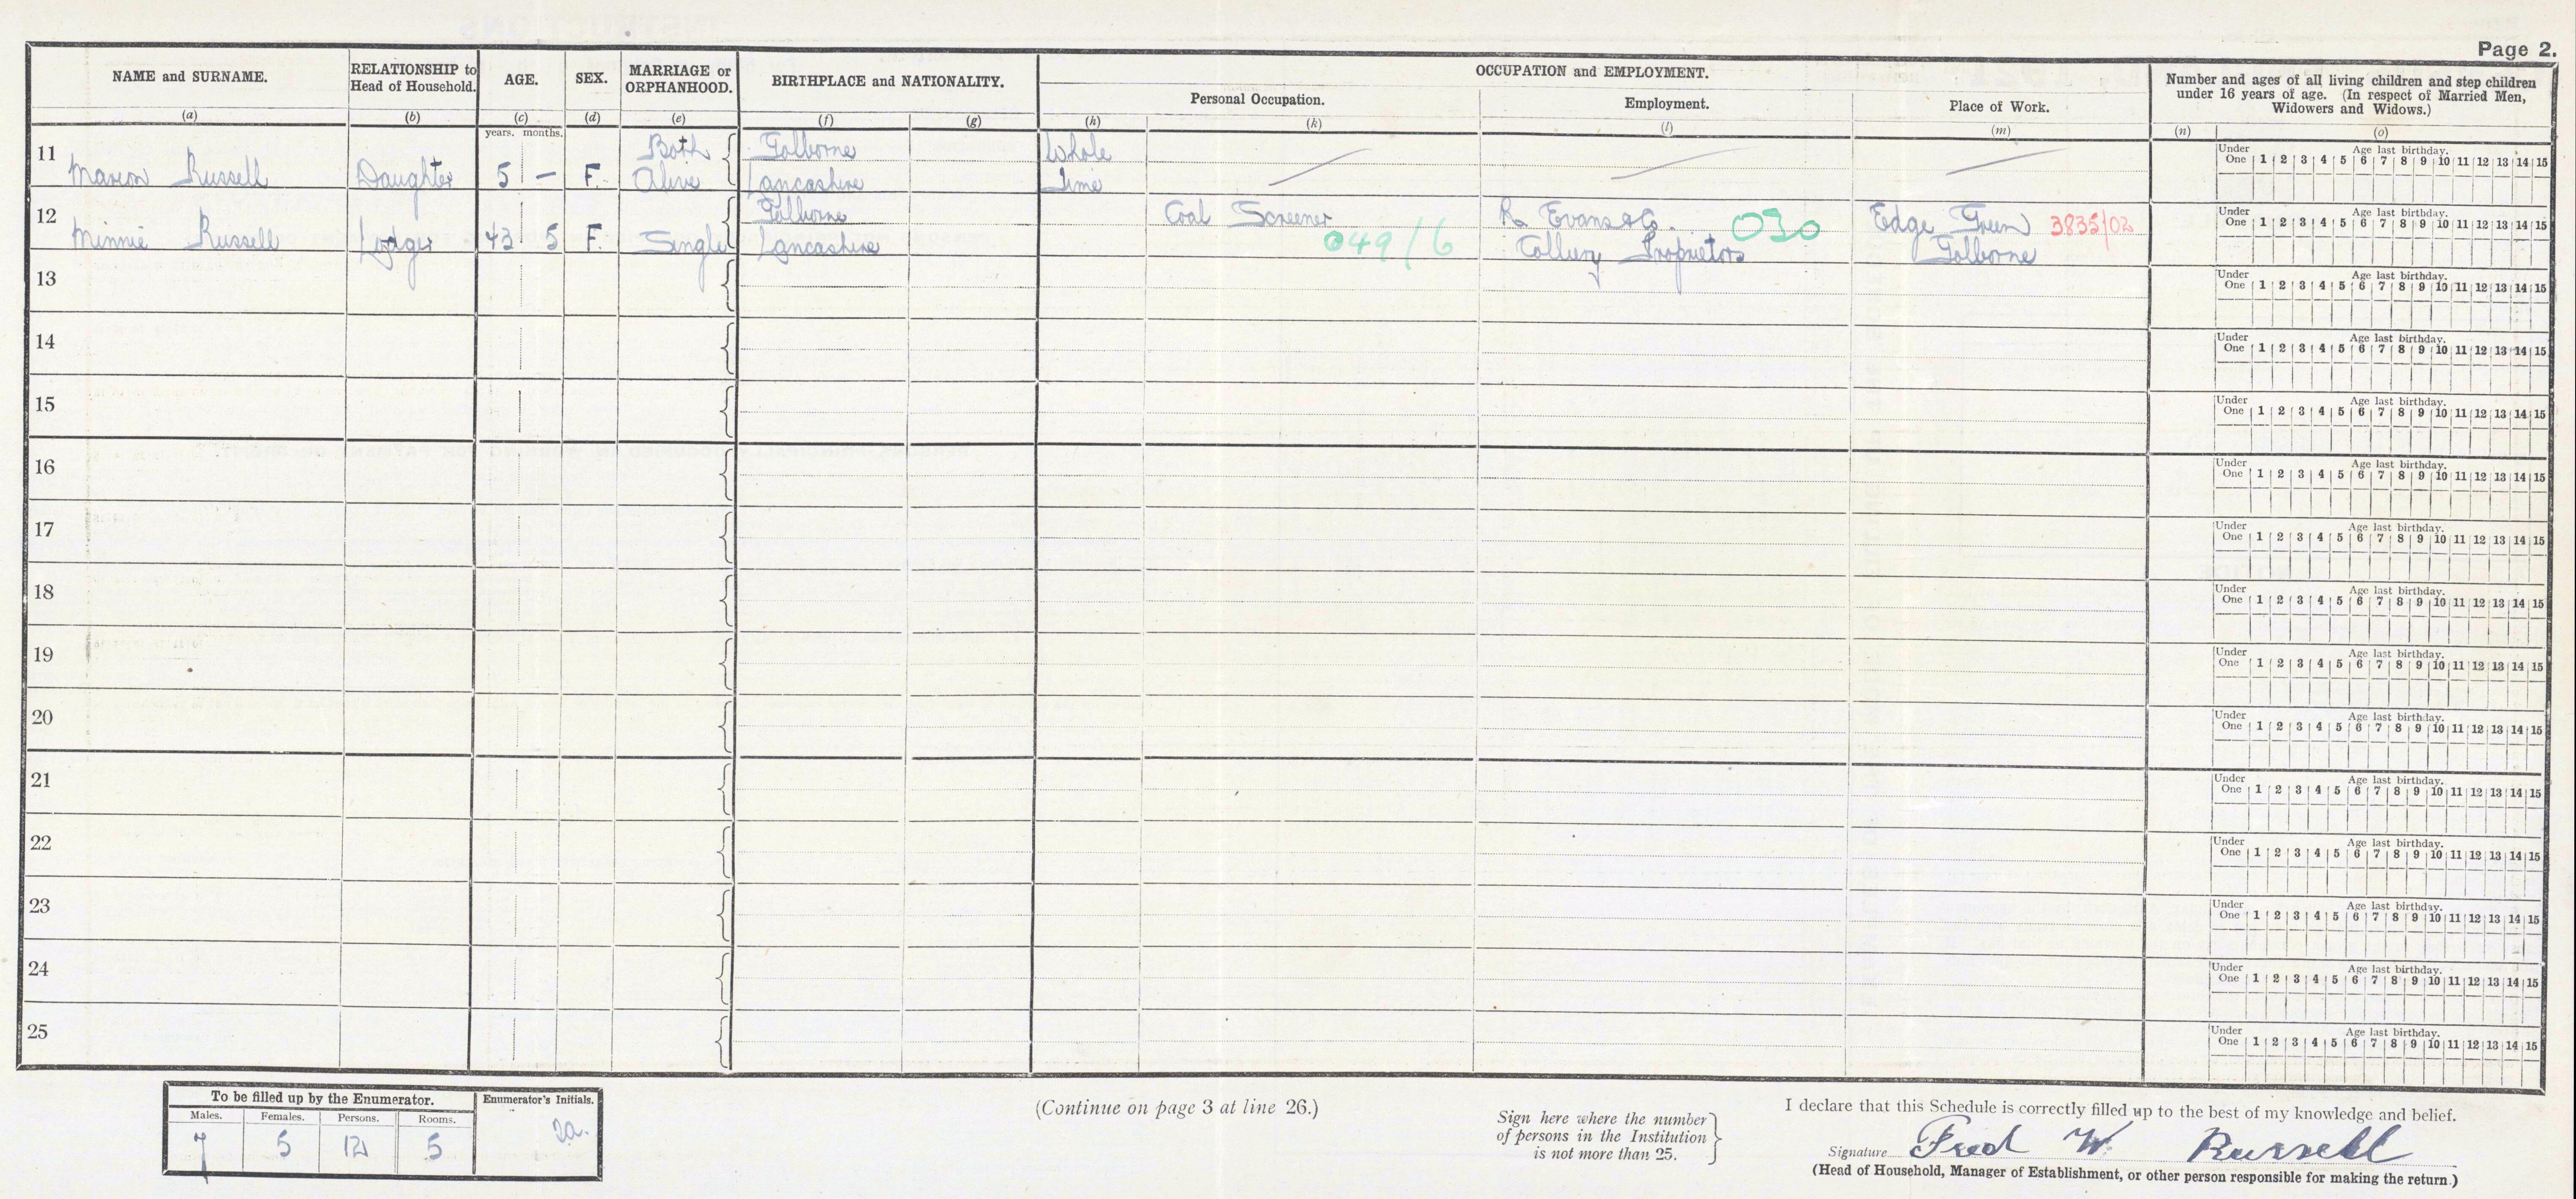 Page 2.
NAME and SURNAME.
RELATIONSHIP to Head of Household.
AGE.
SEX.
MARRIAGE or ORPHANHOOD.
BIRTHPLACE and NATIONALITY.
OCCUPATION and EMPLOYMENT.
Personal Occupation.
Employment.
Place of Work.
Number and ages of all living children and step children
under 16 years of age. (In respect of Married Men,
Widowers and Widows.)
(a) (b) (c) (d) (e) (f) (g) (h) (k) (l) (m) (n) (o)
years. months.
11 Marion Russell Daughter 5 – F. Both Alive Golborne Lancashire Whole Time
Under One 1 2 3 4 5 6 7 8 9 10 11 12 13 14 15 Age last birthday.
12 Minnie Russell Lodger 43 5 F. Single Golborne Lancashire Coal Screener 049/6 R Evans & Co. Colliery Proprietors 030 Edge Green Golborne 3835/02
Under One 1 2 3 4 5 6 7 8 9 10 11 12 13 14 15 Age last birthday.
13 Under One 1 2 3 4 5 6 7 8 9 10 11 12 13 14 15 Age last birthday.
14 Under One 1 2 3 4 5 6 7 8 9 10 11 12 13 14 15 Age last birthday.
15 Under One 1 2 3 4 5 6 7 8 9 10 11 12 13 14 15 Age last birthday.
16 Under One 1 2 3 4 5 6 7 8 9 10 11 12 13 14 15 Age last birthday.
17 Under One 1 2 3 4 5 6 7 8 9 10 11 12 13 14 15 Age last birthday.
18 Under One 1 2 3 4 5 6 7 8 9 10 11 12 13 14 15 Age last birthday.
19 Under One 1 2 3 4 5 6 7 8 9 10 11 12 13 14 15 Age last birthday.
20 Under One 1 2 3 4 5 6 7 8 9 10 11 12 13 14 15 Age last birthday.
21 Under One 1 2 3 4 5 6 7 8 9 10 11 12 13 14 15 Age last birthday.
22 Under One 1 2 3 4 5 6 7 8 9 10 11 12 13 14 15 Age last birthday.
23 Under One 1 2 3 4 5 6 7 8 9 10 11 12 13 14 15 Age last birthday.
24 Under One 1 2 3 4 5 6 7 8 9 10 11 12 13 14 15 Age last birthday.
25 Under One 1 2 3 4 5 6 7 8 9 10 11 12 13 14 15 Age last birthday.
To be filled up by the Enumerator.
Enumerator's Initials.
Males. Females. Persons. Rooms.
7 5 12 5
(Continue on page 3 at line 26.)
Sign here where the number
of persons in the Institution
is not more than 25.
I declare that this Schedule is correctly filled up to the best of my knowledge and belief.
Signature Fred W. Russell
(Head of Household, Manager of Establishment, or other person responsible for making the return.)